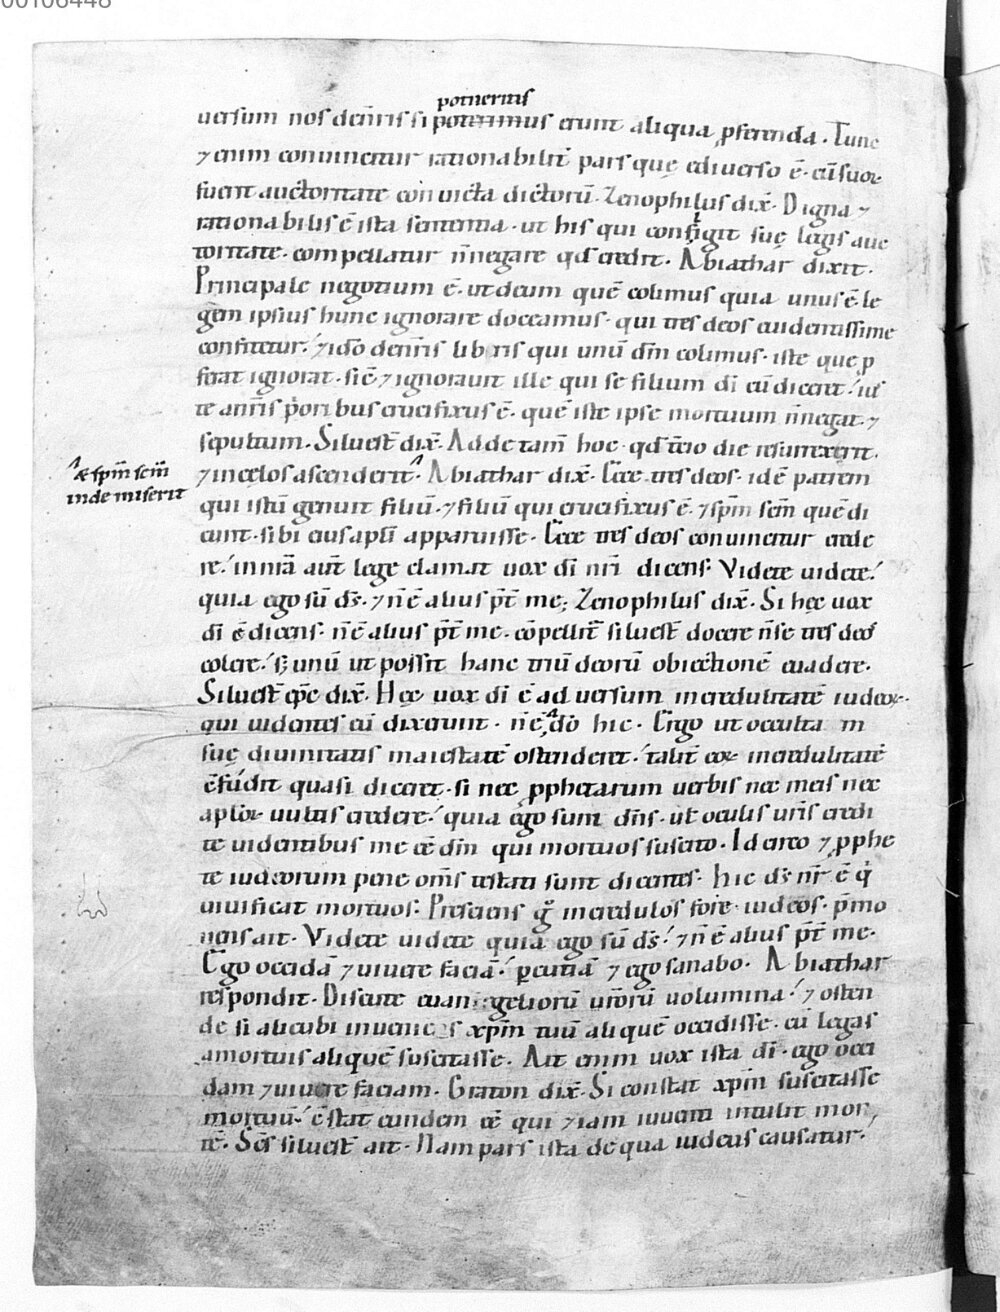 00106448
potueritis
uersum nos den̄ris si poterimus erunt aliqua ꝓferenda. Tunc
⁊ enim conuincetur rationabilit̄ pars quę ediuerso ē. cū suoꝝ
fuerit auctoritate conuicta dictorū. Zenophilus dix̄. Digna ⁊
rationabilis ē ista sententia. ut his qui confugit suę legis auc
toritate. compellatur n̄ negare qđ credit. Abiathar dixit.
Principale negotium ē. ut deum quē colimus quia unus ē. le
gem ipsius hunc ignorare doceamus. qui tres deos euidentissime
confitetur. ⁊ ido den̄ris libris qui unū dm̄ colimus. iste que p
ferat ignorat. sic ⁊ ignorauit ille qui se filium dī cū diceret. us
te anr̄is p̄oribus crucifixus ē. quē iste ipse mortuum n̄ negat. ⁊
sepultum. Siluest̄ dix̄. Adde tam̄ hoc. qđ t̄cio die resurrexerit.
⁊ spm̄ scm̄
inde miserit
⁊ incęlos ascenderit. Abiathar dix̄. Ecce tres deos. idē patrem
qui istū genuit filiū. ⁊ filiū qui crucifixus ē. ⁊ spm̄ scm̄ quē di
cunt. sibi eius apłi apparuisse. Ecce tres deos conuincetur crede
re. in nr̄a aut̄ lege clamat uox dī nr̄i dicens. Videte uidete.
quia ego sū ds̄. ⁊ n̄ ē alius p̄t me; Zenophilus dix̄. Si hęc uox
dī ē dicens. n̄ ē alius p̄t me. cōpellit̄ siluest̄ docere n̄ se tres deos
colere. s; unū ut possit hanc triū deorū obiectionē euadere.
Siluest̄ ep̄c dix̄. Hęc uox dī ē ad uersum incredulitatē iudeoꝝ.
qui uidentes eū dixerunt. n̄ ē do hic. Ergo ut occulta m
suę diuinitatis maiestatē ostenderet. talit̄ eoꝝ incredulitatē
cfudit quasi diceret. si nec ꝓphetarum uerbis nec meis nec
aptoꝝ uultis credere. quia ego sum dn̄s. ut oculis ur̄is credi
te uidentibus me ēē dm̄ qui mortuos suscito. Idcirco ⁊ ꝓphe
te iudeorum pene om̄s testati sunt dicentes. hic ds̄ nr̄ ē q̇
uiuificat mortuos. Presciens g̊ incredulos fore iudeos. p̄mo
nens ait. Videte uidete quia ego sū ds̄. ⁊ n̄ ē alius p̄t me.
Ego occidā ⁊ uiuere faciā. ꝑcutiā ⁊ ego sanabo. Abiathar
respondit. Discute euangeliorū ur̄orū uolumina. ⁊ osten
de si alicubi inuenies xpm̄ tuū aliquē occidisse. cū legas
amortuis aliquē suscitasse. Ait enim uox ista dī. ego occi
dam ⁊ uiuere faciam. Craton dix̄. Si constat xpm̄ suscitasse
mortuū. cstat eundem ēē qui ⁊ iam uiuenti intulit mor
tē. Scs̄ siluest̄ ait. Nam pars ista de qua iudeus causatur.